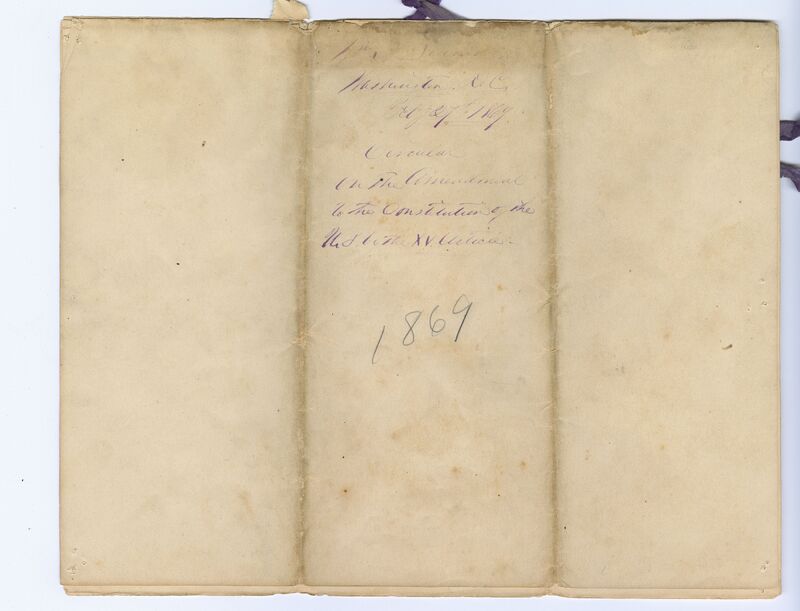 Wm
Washington D.C.
Feby 27th 1869.
Circular
on the Amendment
to the Constitution of the
U.S. by the XV Article.
1869